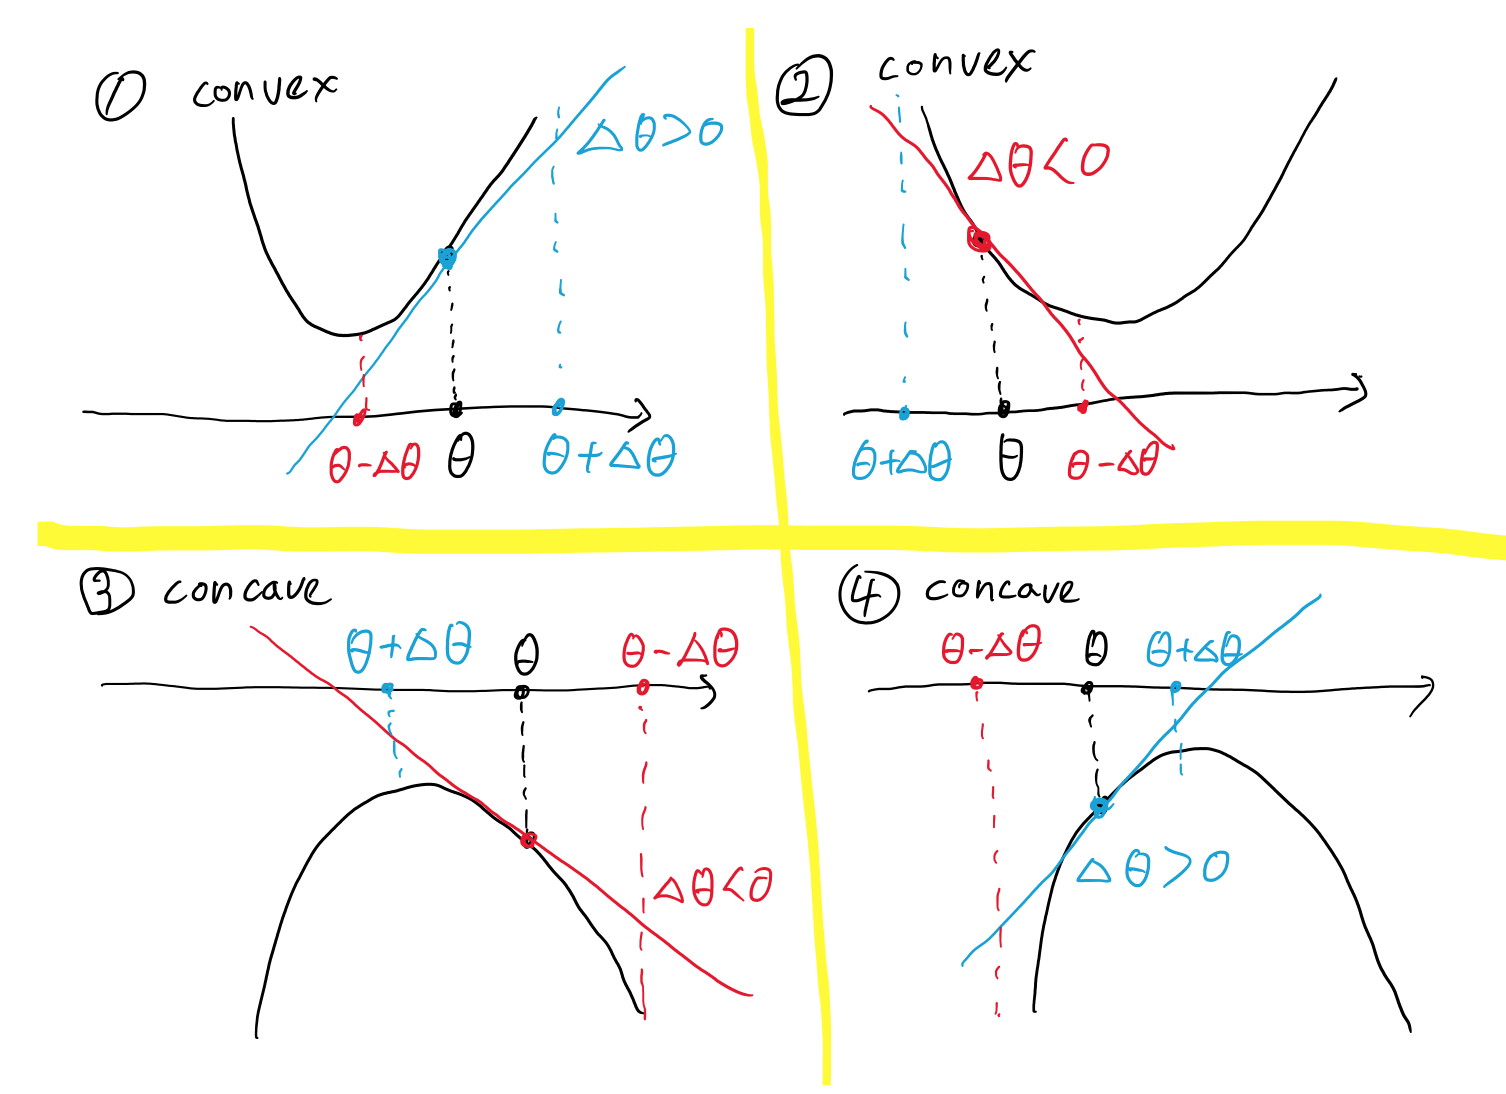 ① convex
Δθ>0
θ-Δθ θ θ+Δθ
② convex
Δθ<0
θ+Δθ θ θ-Δθ
③ concave
θ+Δθ θ θ-Δθ
Δθ<0
④ concave
θ-Δθ θ θ+Δθ
Δθ>0